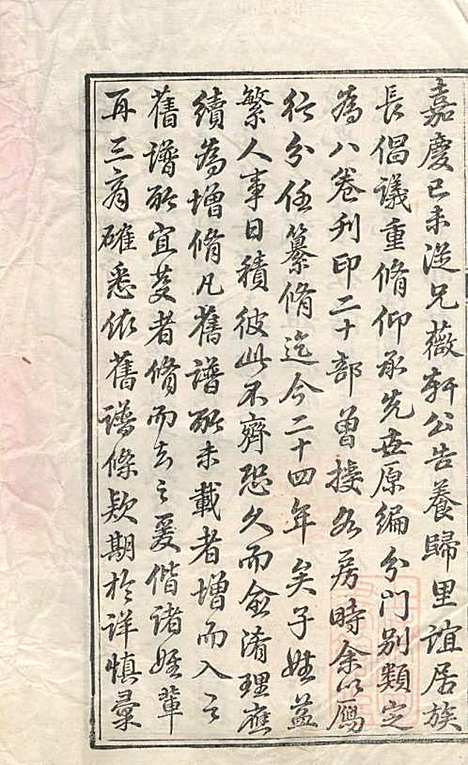 嘉慶己未從兄薇軒公告養歸里誼居族
長倡議重脩仰承先世原編分門別類定
為八卷刊印二十部曾授各房時余以鴈
行分任纂脩迄今二十四年矣子姓益
繁人事日積彼此不齊恐久而愈淆理應
續為增脩凡舊譜所未載者增而入之
舊譜所宜芟者脩而去之爰偕諸姪輩
再三商確悉依舊譜條欵期於詳慎彙